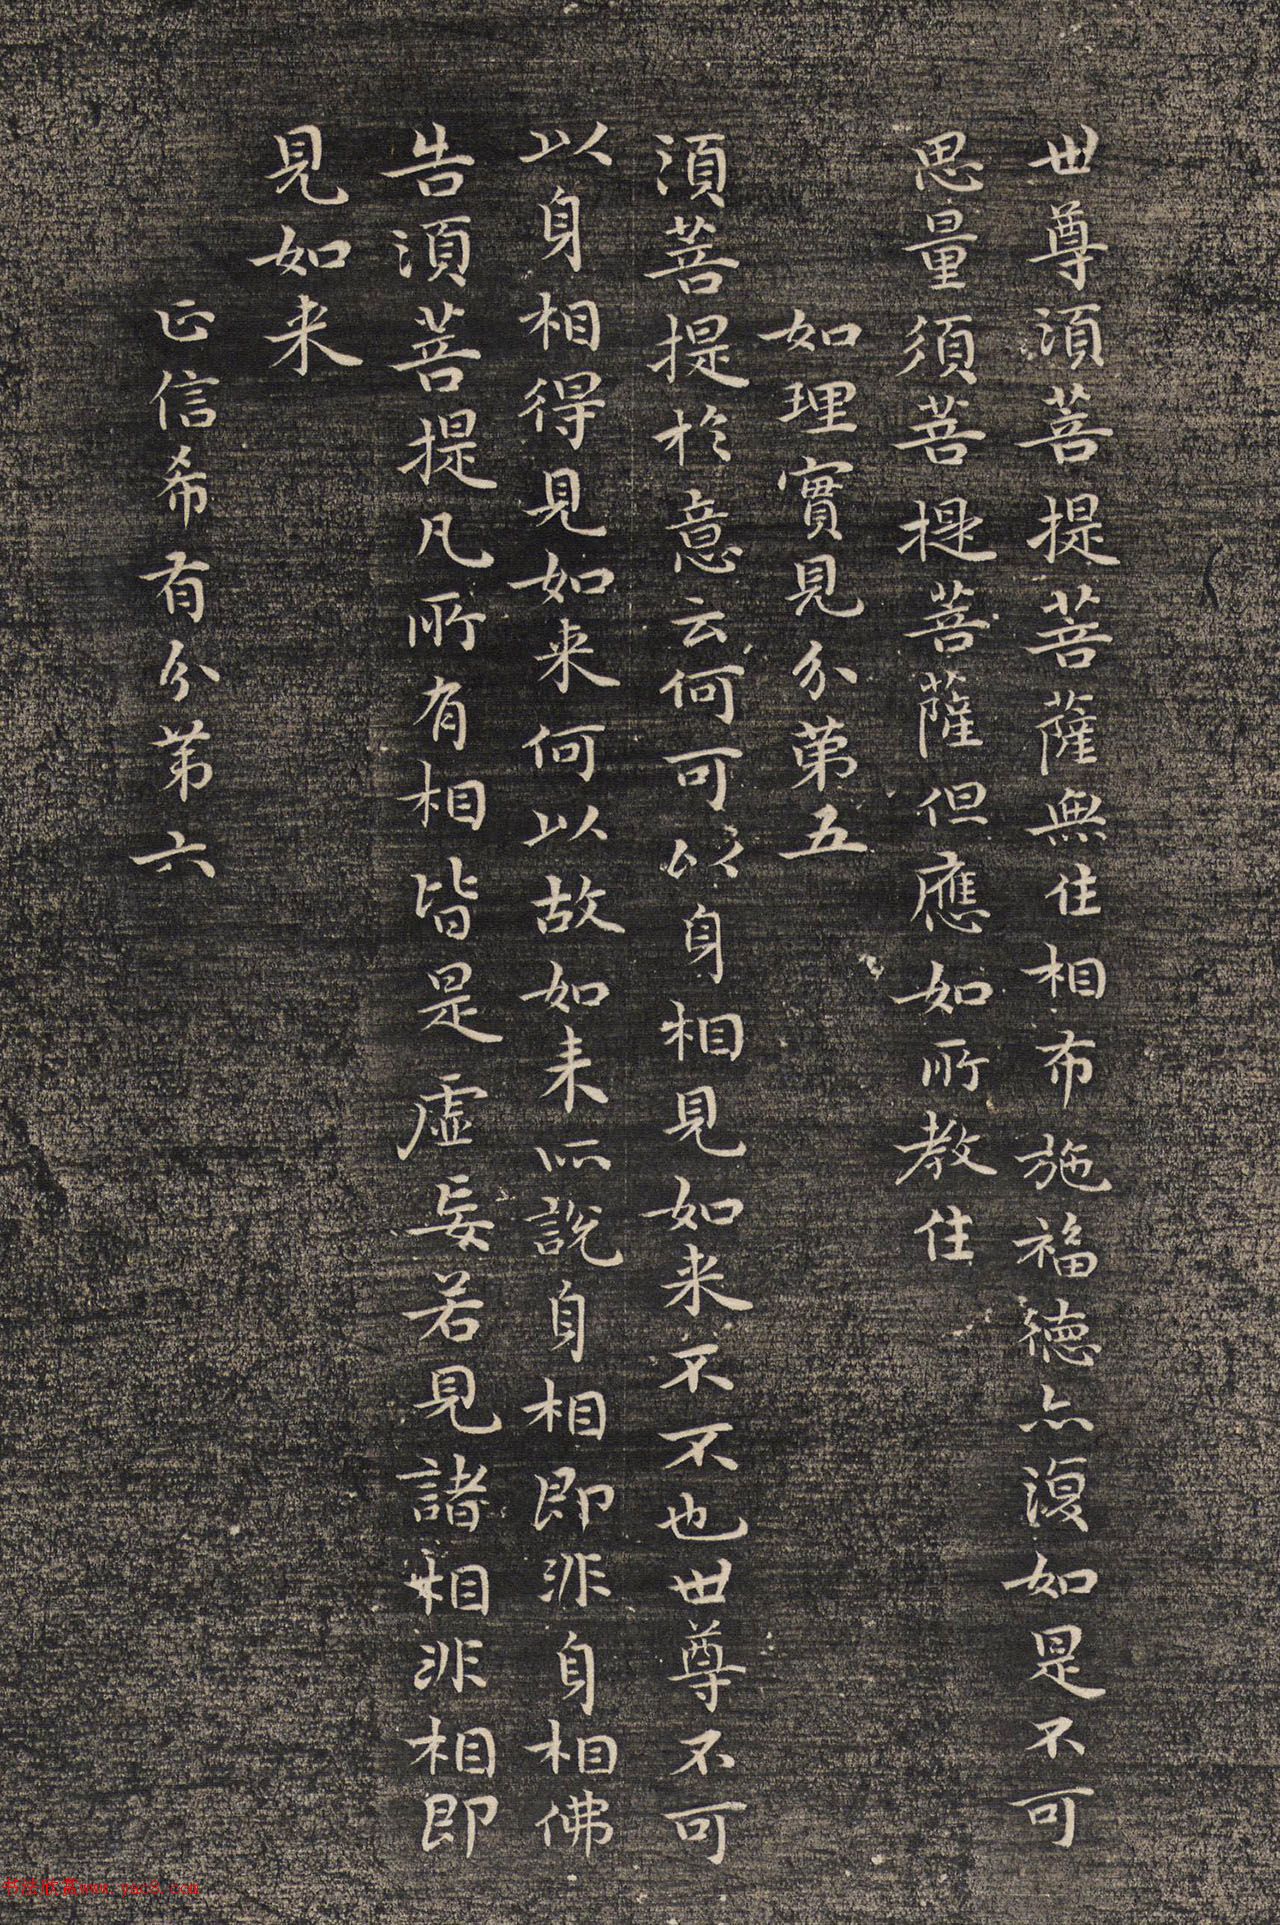 世尊須菩提菩薩無住相布施福德亦復如是不可
思量須菩提菩薩但應如所教住
如理實見分第五
須菩提於意云何可以身相見如来不不也世尊不可
以身相得見如来何以故如来所說身相即非身相佛
告須菩提凡所有相皆是虛妄若見諸相非相即
見如来
正信希有分第六
书法欣赏www.yac8.com